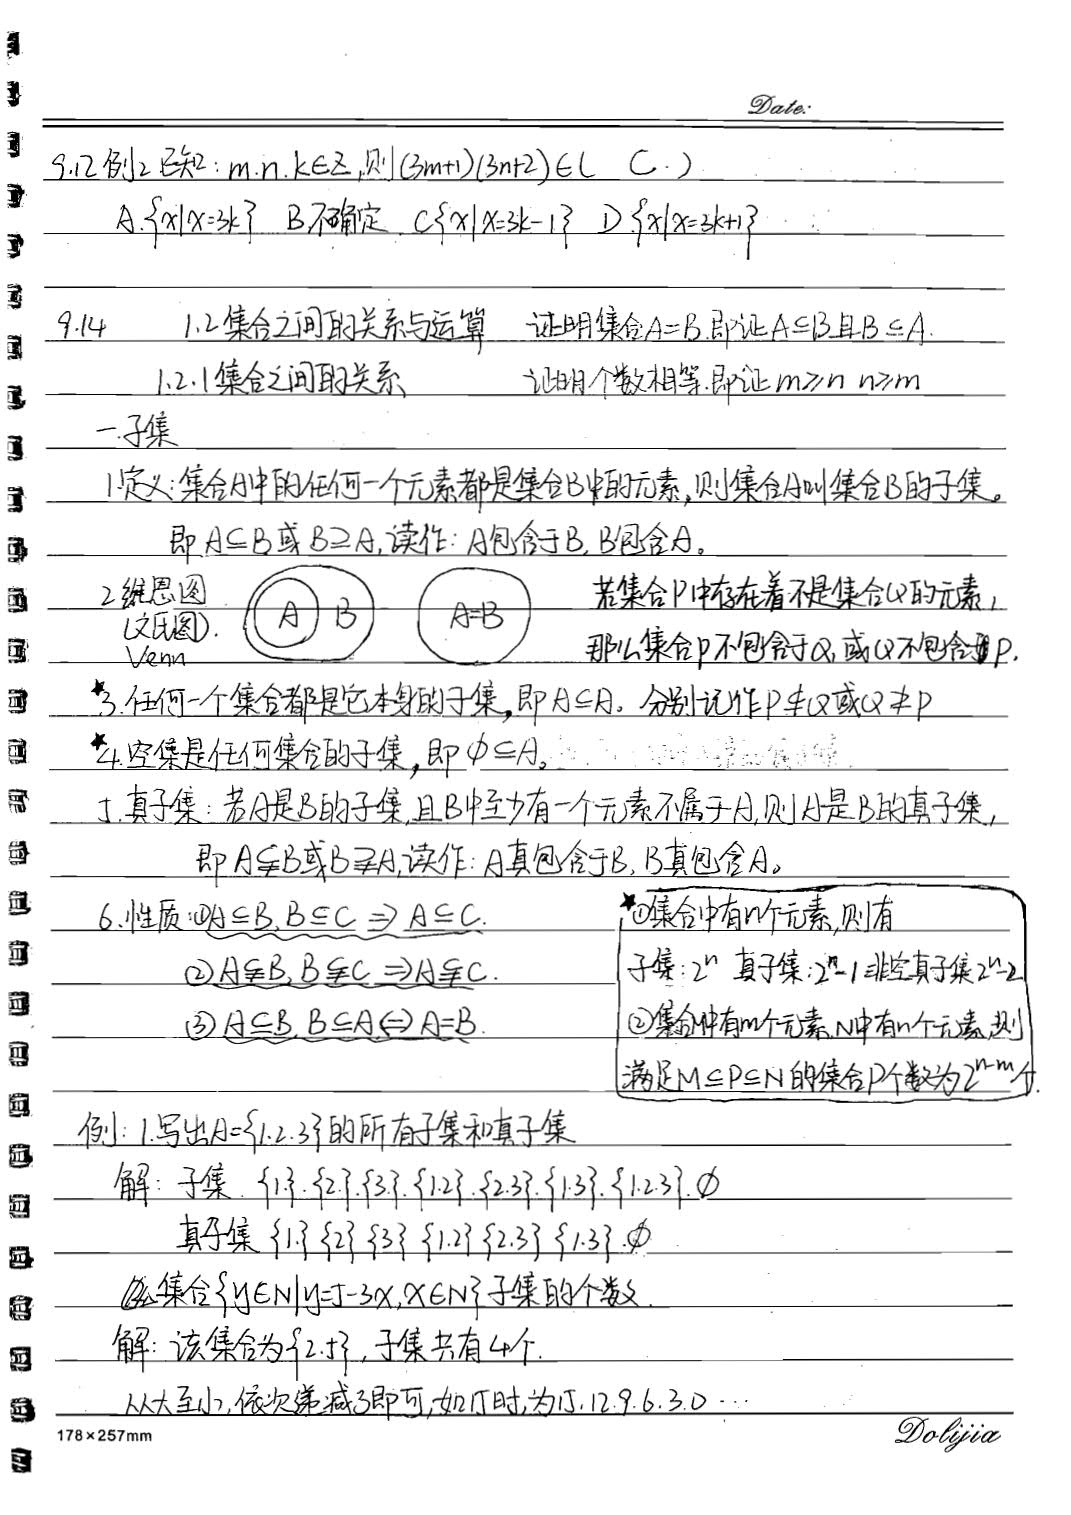 Date:
9.12 例2 已知：m.n.k∈Z,则(3m+1)(3n+2)∈( C. )
A.{x|x=3k} B.不确定 C{x|x=3k-1} D.{x|x=3k+1}
9.14 1.2集合之间的关系与运算 证明集合A=B.即证A⊆B且B⊆A.
1.2.1集合之间的关系 证明个数相等.即证m≥n n≥m
一.子集
1.定义:集合A中的任何一个元素都是集合B中的元素,则集合A叫集合B的子集。
即A⊆B或B⊇A,读作：A包含于B,B包含A。
2.维恩图
(文氏图).
Venn
A B A=B
若集合P中存在着不是集合Q的元素,
那么集合P不包含于Q,或Q不包含P.
★3.任何一个集合都是它本身的子集,即A⊆A。分别记作P⊈Q或Q⊉P
★4.空集是任何集合的子集,即∅⊆A。
5.真子集：若A是B的子集,且B中至少有一个元素不属于A,则A是B的真子集,
即A⫋B或B⫌A,读作：A真包含于B,B真包含A。
6.性质:①A⊆B,B⊆C⇒A⊆C.
②A⫋B,B⫋C⇒A⫋C.
③A⊆B,B⊆A⇔A=B.
★①集合中有n个元素,则有
子集：2ⁿ 真子集：2ⁿ-1 非空真子集2ⁿ-2
②集合M中有m个元素,N中有n个元素,则
满足M⊆P⊆N的集合P个数为2ⁿ⁻ᵐ个.
例：1.写出A={1.2.3}的所有子集和真子集
解：子集.{1.}.{2.}.{3.}.{1.2}.{2.3}.{1.3}.{1.2.3}.∅
真子集{1.}{2}{3}{1.2}{2.3}{1.3}.∅
集合{y∈N|y=5-3x,x∈N}子集的个数.
解：该集合为{2.5},子集共有4个.
从大至小,依次递减3即可,如15时,为15.12.9.6.3.0…
178×257mm
Dolijia